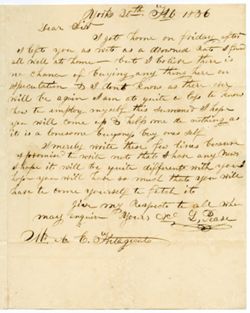 York 20th Feb 1836
Dear Sir
I got home on friday after
I left you as wett as a drowned Rat & found
all well at home — but I beleive there is
no chance of buying any thing here on
speculation & I dont know as there
will be again I am at quite a loss to know
how to employ myself this summer I hope
you will come up & help me do nothing as
it is a lonesome buysness buy ones self
I merely write these few lines because
I promised to write not that I have any News
I hope it will be quite different with you &
hope you will have so much that you will
have to come yourself to fetch it
Give my Respects to all who
may enquire Yours &c L. Pease
Mr. A. C.